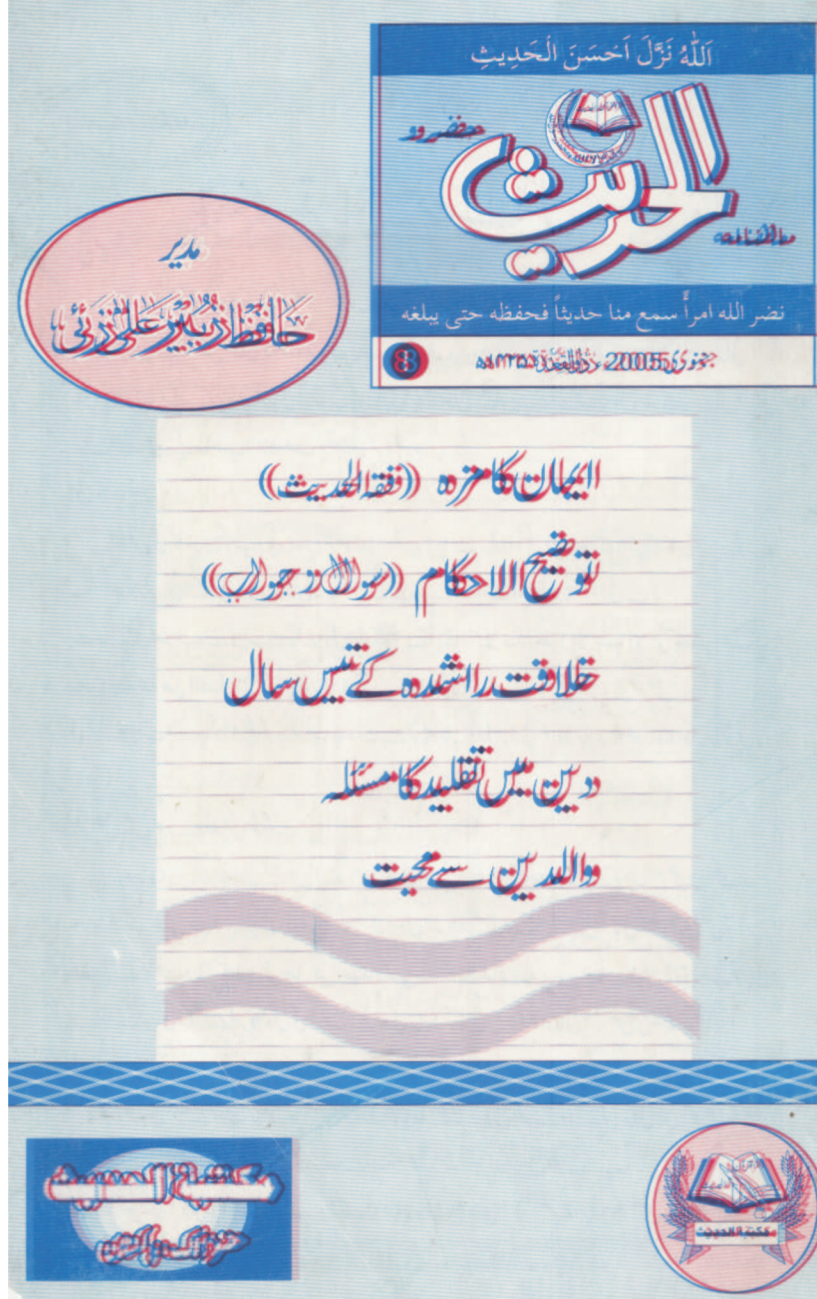 اَللّٰهُ نَزَّلَ اَحْسَنَ الْحَدِيثِ
ماهنامه الحديث حضرو
نضر الله امرأً سمع منا حديثاً فحفظه حتى يبلغه
جنوری 2005ء ذوالقعدة ۱۴۲۵ھ
8
مدیر
حافظ زبیر علی زئی
ایمان کا مزہ ((فقہ الحدیث))
توضیح الاحکام ((سوال و جواب))
خلافت راشدہ کے تیس سال
دین میں تقلید کا مسئلہ
والدین سے محبت
مكتبة الحديث
مكتبة الحديث